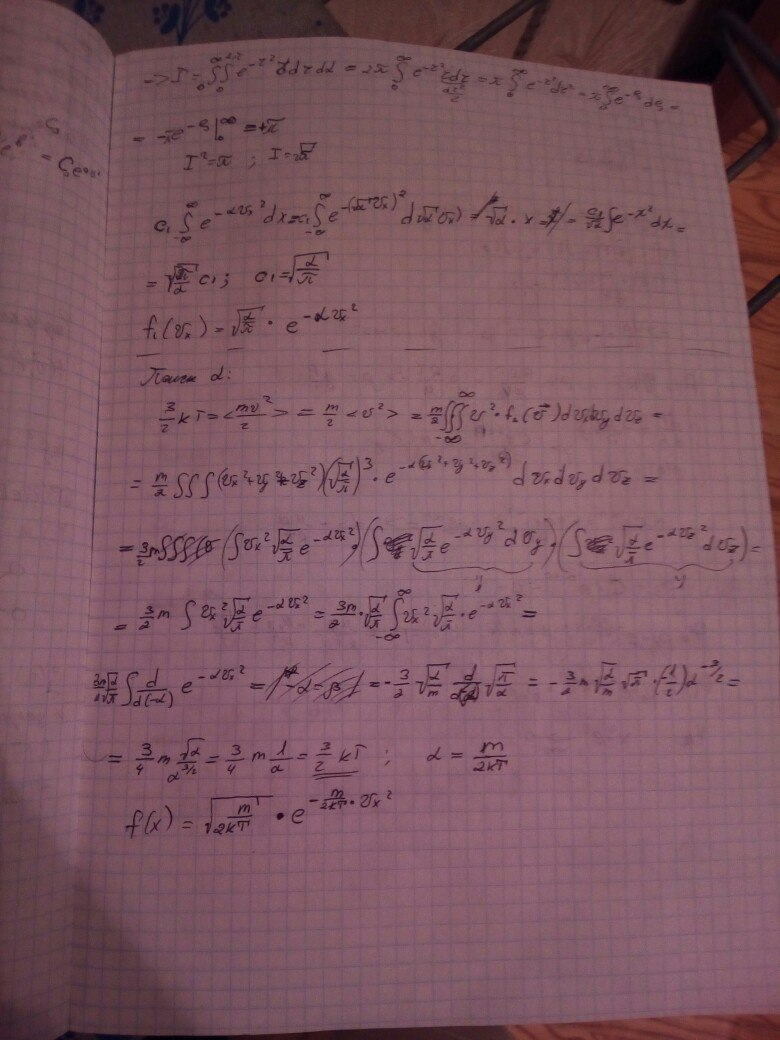 -> I = ∫₀^∞ ∫₀^2π e^-r² r dr dα = 2π ∫₀^∞ e^-r² r dr = π ∫₀^∞ e^-r² dr² = π ∫₀^∞ e^-ς dς =
= -πe^-ς |₀^∞ = +π
I² = π ; I = √π
c₁ ∫_-∞^∞ e^-αvx² dx = c₁ ∫_-∞^∞ e^-(√α vx)² d(√α vx) = = c₁/√α ∫ e^-x² dx =
= √(π/α) c₁ ; c₁ = √(α/π)
f₁(vx) = √(α/π) · e^-αvx²
α:
3/2 kT = <mv²/2> = m/2 <v²> = m/2 ∫∫∫_-∞^∞ v² · f₃(v⃗) dvx dvy dvz =
= m/2 ∫∫∫ (vx² + vy² + vz²) (√(α/π))³ · e^-α(vx² + vy² + vz²) dvx dvy dvz =
= 3/2 m (∫ vx² √(α/π) e^-αvx²) · (∫ √(α/π) e^-αvy² dvy) · (∫ √(α/π) e^-αvz² dvz) =
= 3/2 m ∫ vx² √(α/π) e^-αvx² = 3m/2 · √(α/π) ∫_-∞^∞ vx² √(α/π) · e^-αvx² =
3m√α/2√π ∫ d/d(-α) e^-αvx² = = -3/2 √(α/m) d/dα √(π/α) = -3/2 m √(α/m) √π · (-1/2) α^-3/2 =
= 3/4 m √α/α^3/2 = 3/4 m 1/α = 3/2 kT ; α = m/2kT
f(x) = √(m/2kT) · e^-m/2kT · vx²